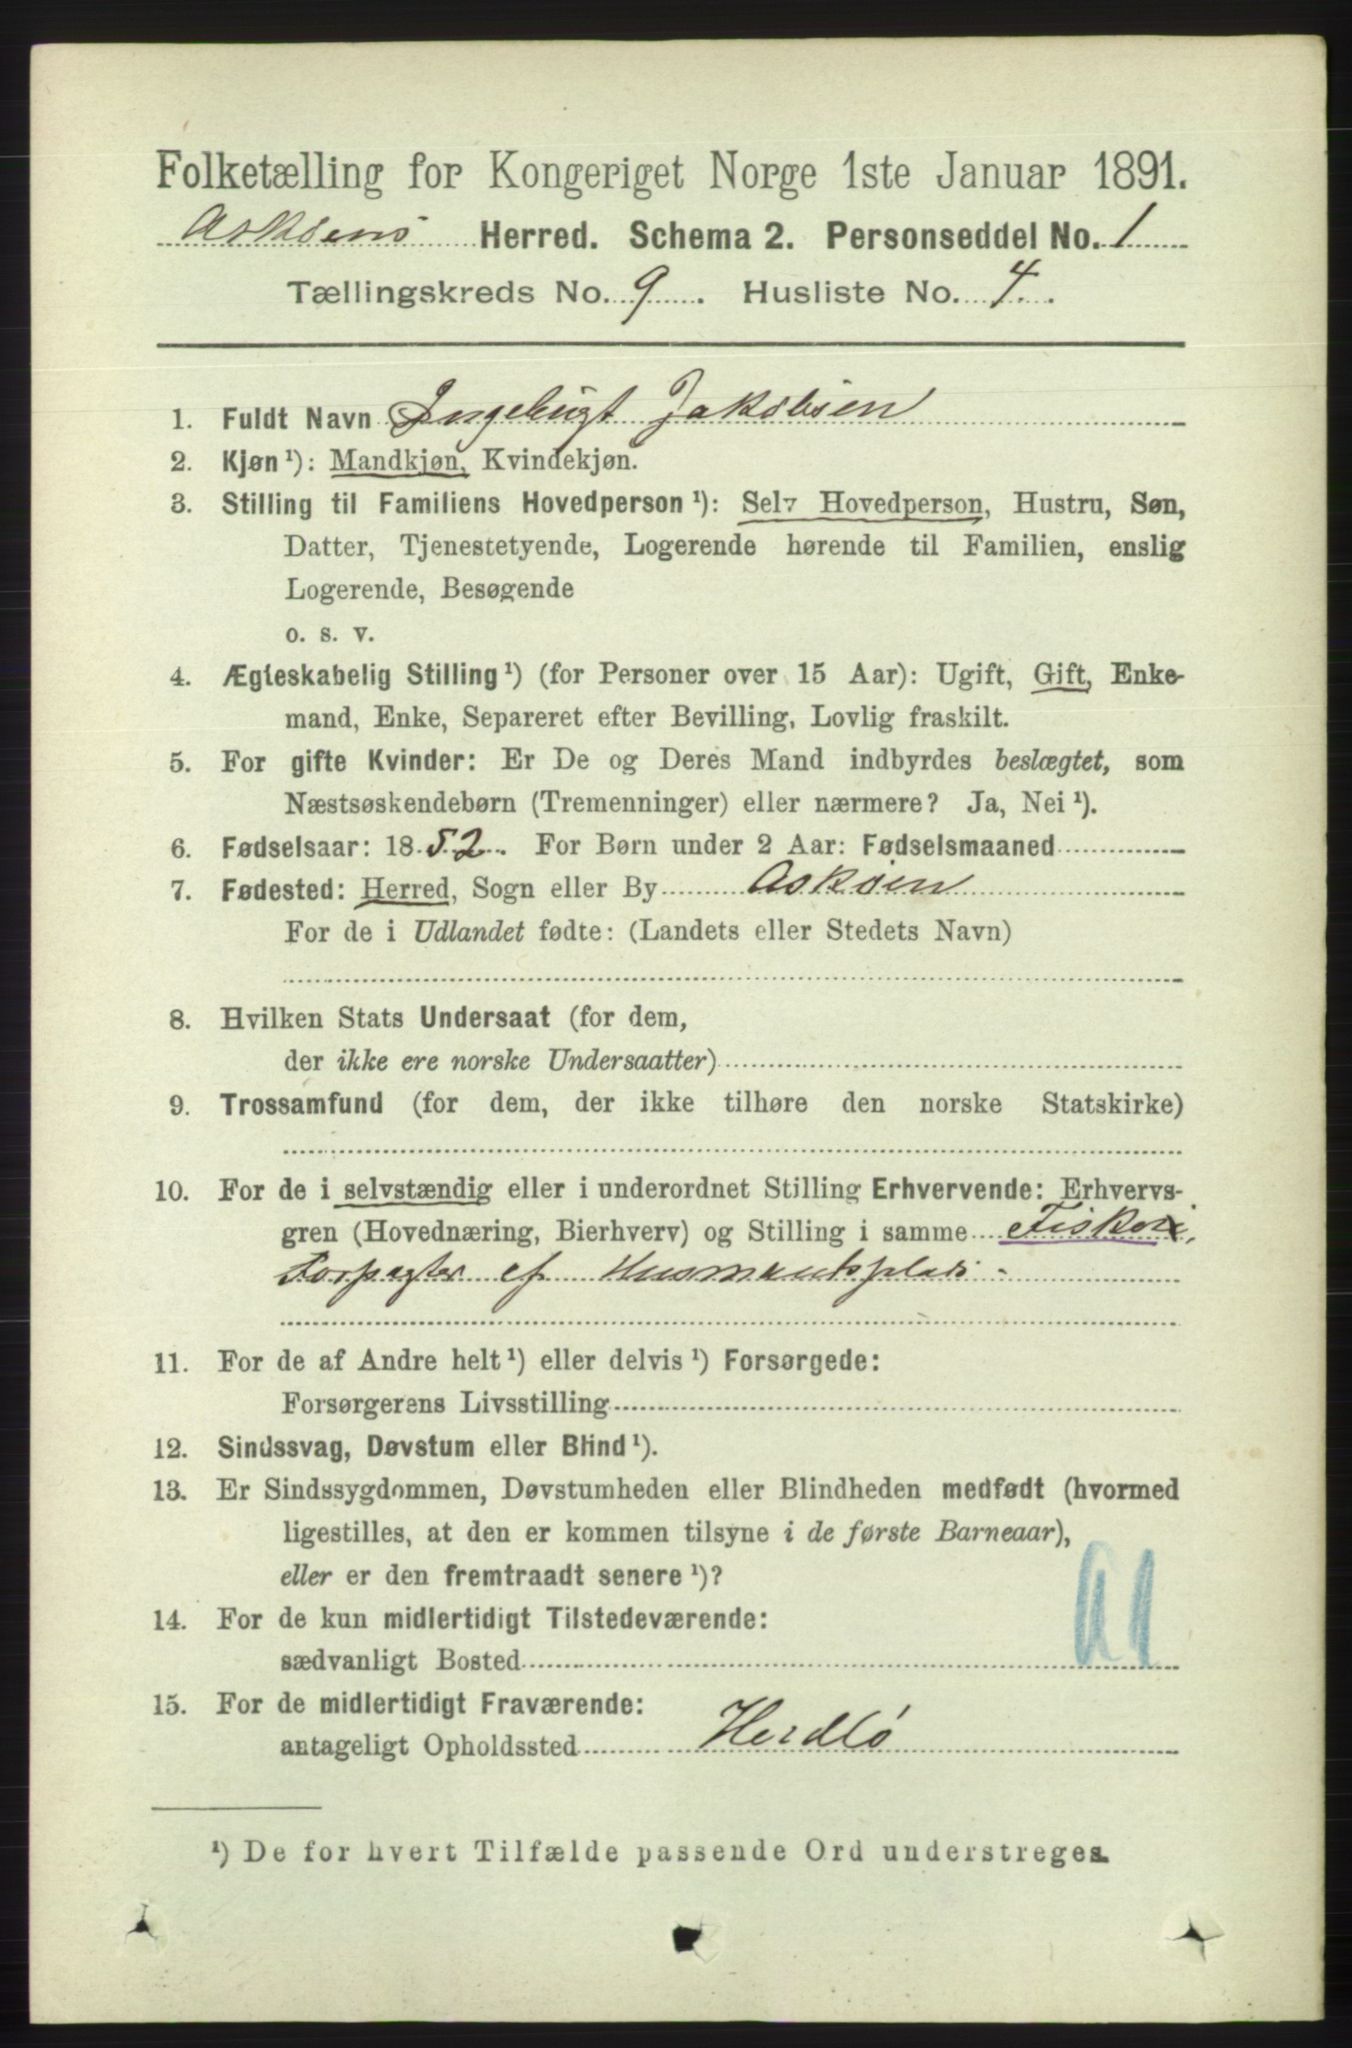 Folketælling for Kongeriget Norge 1ste Januar 1891.
Askøens Herred. Schema 2. Personseddel No. 1
Tællingskreds No. 9. Husliste No. 4.
1. Fuldt Navn Ingebrigt Jakobsen
2. Kjøn ¹): Mandkjøn, Kvindekjøn.
3. Stilling til Familiens Hovedperson ¹): Selv Hovedperson, Hustru, Søn,
Datter, Tjenestetyende, Logerende hørende til Familien, enslig
Logerende, Besøgende
o. s. v.
4. Ægteskabelig Stilling ¹) (for Personer over 15 Aar): Ugift, Gift, Enke-
mand, Enke, Separeret efter Bevilling, Lovlig fraskilt.
5. For gifte Kvinder: Er De og Deres Mand indbyrdes beslægtet, som
Næstsøskendebørn (Tremenninger) eller nærmere? Ja, Nei ¹).
6. Fødselsaar: 1852. For Børn under 2 Aar: Fødselsmaaned
7. Fødested: Herred, Sogn eller By Askøen
For de i Udlandet fødte: (Landets eller Stedets Navn)
8. Hvilken Stats Undersaat (for dem,
der ikke ere norske Undersaatter)
9. Trossamfund (for dem, der ikke tilhøre den norske Statskirke)
10. For de i selvstændig eller i underordnet Stilling Erhvervende: Erhvervs-
gren (Hovednæring, Bierhverv) og Stilling i samme Fiskeri,
Forpagter af Husmandsplads.
11. For de af Andre helt ¹) eller delvis ¹) Forsørgede:
Forsørgerens Livsstilling
12. Sindssvag, Døvstum eller Blind ¹).
13. Er Sindssygdommen, Døvstumheden eller Blindheden medfødt (hvormed
ligestilles, at den er kommen tilsyne i de første Barneaar),
eller er den fremtraadt senere ¹)?
14. For de kun midlertidigt Tilstedeværende:
sædvanligt Bosted
15. For de midlertidigt Fraværende:
antageligt Opholdssted Herdlø
¹) De for hvert Tilfælde passende Ord understreges.